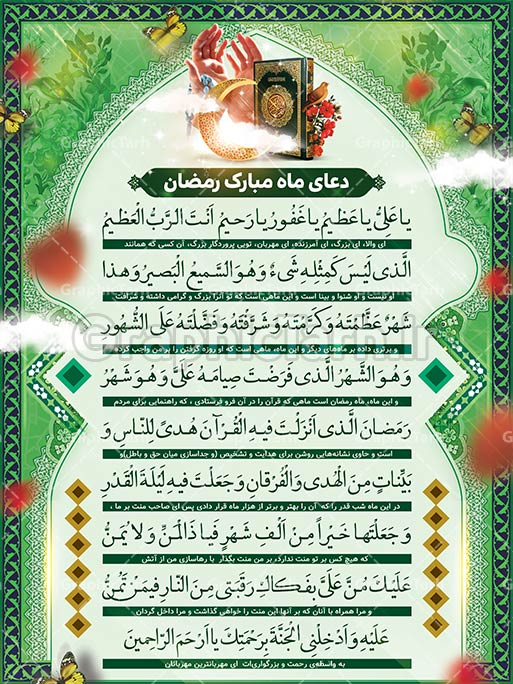 دعای ماه مبارک رمضان
یا عَلِیُّ یا عَظیمُ یا غَفُورُ یا رَحیمُ اَنْتَ الرَّبُّ الْعَظیمُ
ای والا، ای بزرگ، ای آمرزنده، ای مهربان، تویی پروردگار بزرگ، آن کسی که همانند
الَّذی لَیْسَ کَمِثْلِهِ شَیْءٌ وَهُوَ السَّمیعُ الْبَصیرُ وَهذا
او نیست و او شنوا و بینا است و این ماهی است که تو آنرا بزرگ و گرامی داشته و شرافت
شَهْرٌ عَظَّمْتَهُ وَکَرَّمْتَهُ وَشَرَّفْتَهُ وَفَضَّلْتَهُ عَلَی الشُّهُورِ
و برتری داده بر ماه‌های دیگر و این ماه، ماهی است که او روزه گرفتن را بر من واجب کرده
وَهُوَ الشَّهْرُ الَّذی فَرَضْتَ صِیامَهُ عَلَیَّ وَهُوَ شَهْرُ
و این ماه، ماه رمضان است ماهی که قرآن را در آن فرو فرستادی ، که راهنمایی برای مردم
رَمَضانَ الَّذی اَنْزَلْتَ فیهِ الْقُرْآنَ هُدیً لِلنّاسِ وَ
است و حاوی نشانه‌هایی روشن برای هدایت و تشخیص (و جداسازی میان حق و باطل)و
بَیِّناتٍ مِنَ الْهُدی وَالْفُرْقانِ وَجَعَلْتَ فیهِ لَیْلَةَ الْقَدْرِ
در این ماه شب قدر را که آن را بهتر و برتر از هزار ماه قرار دادی پس ای صاحب منت بر ما ،
وَجَعَلْتَها خَیْراً مِنْ اَلْفِ شَهْرٍ فَیا ذَا الْمَنِّ وَلا یُمَنُّ
که هیچ کس بر تو منت ندارد، بر من منت بگذار با رهاسازی من از آتش
عَلَیْکَ مُنَّ عَلَیَّ بِفَکاکِ رَقَبَتی مِنَ النّارِ فیمَنْ تَمُنُّ
و مرا همراه با آنان که بر آنها این منت را خواهی گذاشت و مرا داخل گردان
عَلَیْهِ وَاَدْخِلْنِی الْجَنَّةَ بِرَحْمَتِکَ یا اَرْحَمَ الرّاحِمینَ
به واسطه‌ی رحمت و بزرگواری‌ات ای مهربانترین مهربانان
GraphicTarh.ir